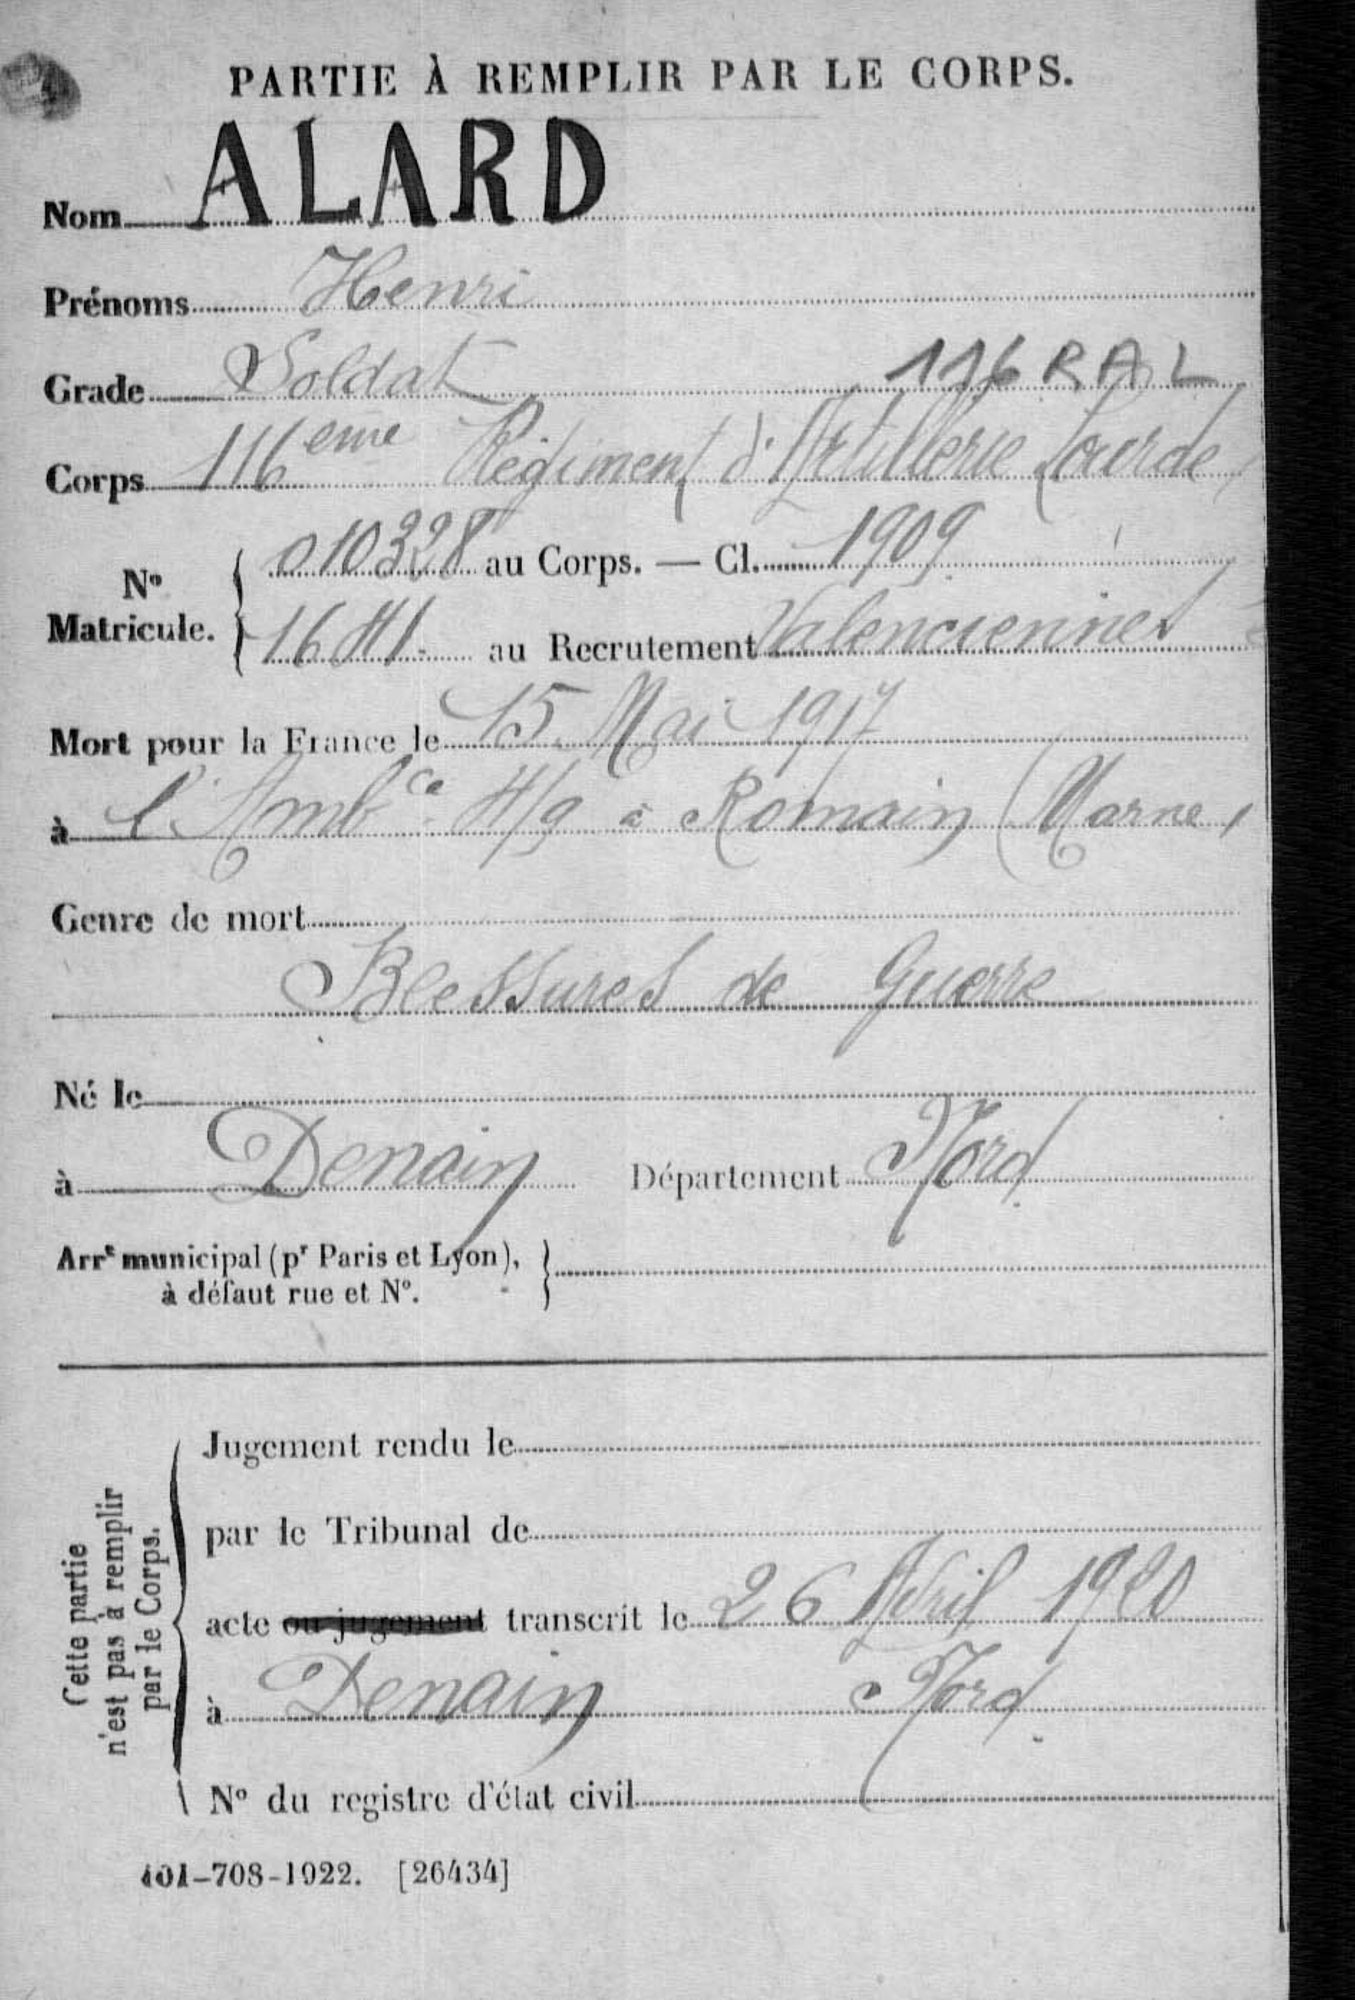 PARTIE À REMPLIR PAR LE CORPS.
Nom ALARD
Prénoms Henri
Grade Soldat 116 RAL
Corps 116eme Régiment d'Artillerie Lourde
No Matricule. { 010328 au Corps. — Cl. 1909
1641 au Recrutement Valenciennes
Mort pour la France le 15 Mai 1917
à l'Ambce 4/9 à Romain (Marne)
Genre de mort
Blessures de Guerre
Né le
à Denain Département Nord
Arrt municipal (pr Paris et Lyon), }
à défaut rue et No.
Cette partie
n'est pas à remplir
par le Corps.
Jugement rendu le
par le Tribunal de
acte ou jugement transcrit le 26 Avril 1920
à Denain Nord
No du registre d'état civil
101-708-1922. [26434]